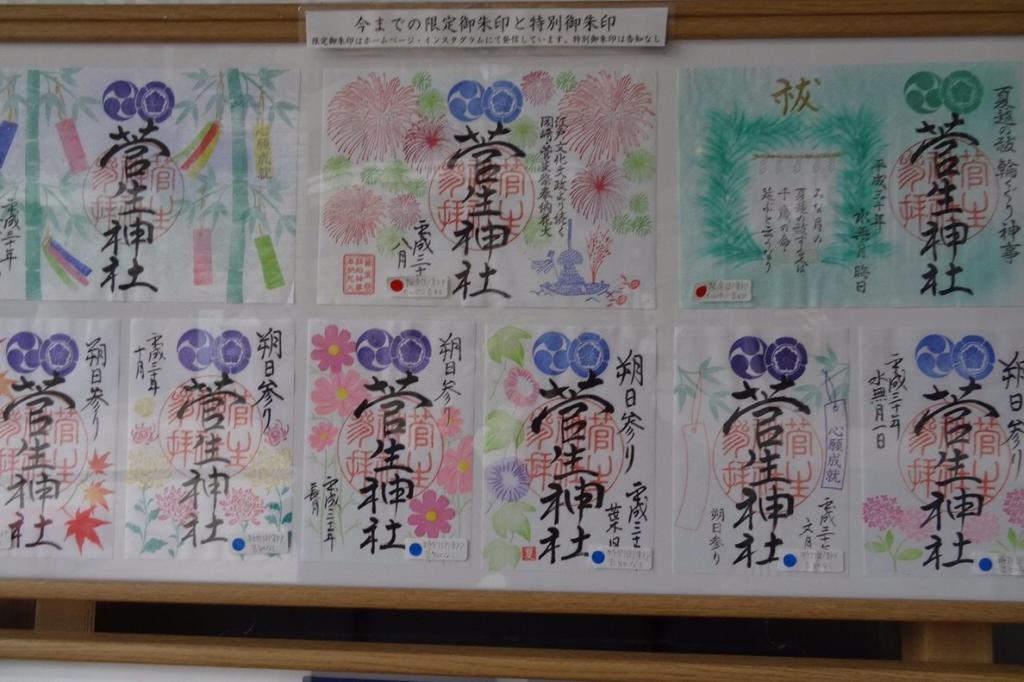 今までの限定御朱印と特別御朱印
限定御朱印はホームページ・インスタグラムにて発信しています。特別御朱印は告知なし
心願成就
菅生神社
平成三十年
江戸文化文政より続く
岡崎菅生祭奉納花火
菅生神社
平成三十
八月
夏越の祓 輪くぐり神事
菅生神社
平成三十年
水無月 晦日
祓
みな月の
夏越の祓する人は
千歳の命
延ぶと云うなり
朔日参り
菅生神社
朔日参り
菅生神社
平成三十年
十月
朔日参り
菅生神社
平成三十年
長月
朔日参り
菅生神社
平成三十
葉月
心願成就
菅生神社
平成三十年
六月
朔日参り
朔日参り
菅生神社
平成三十年
水無月一日